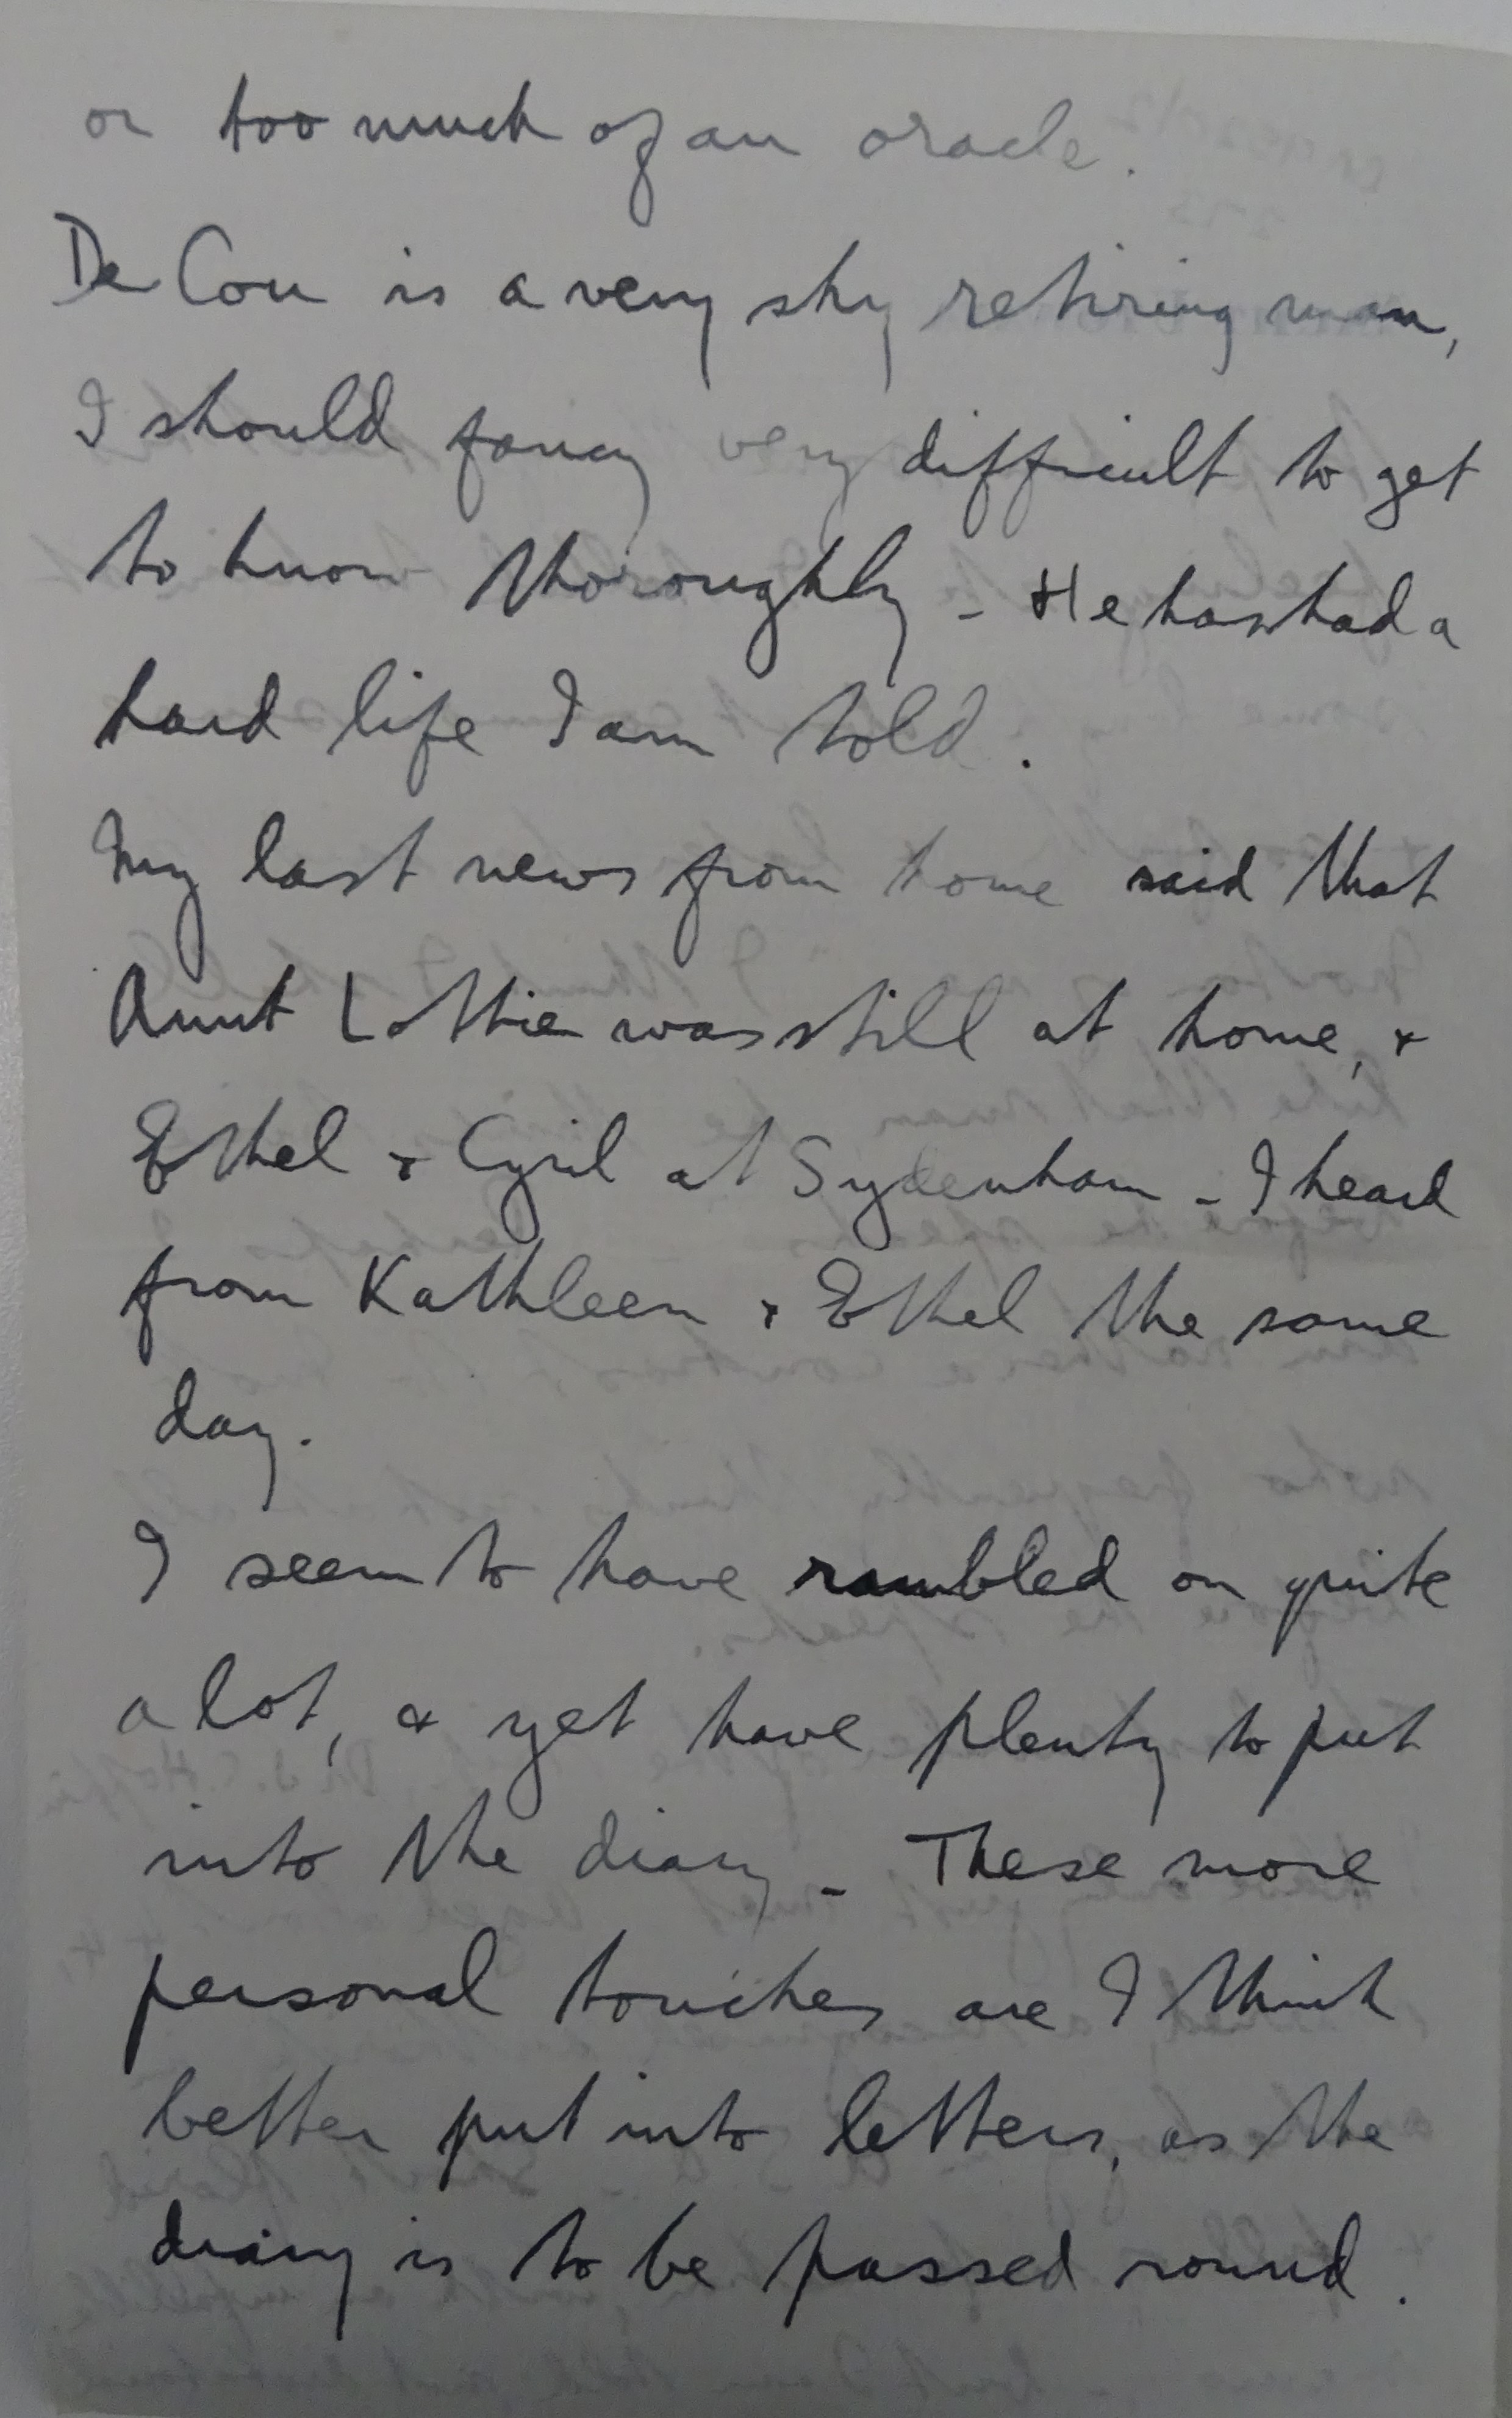 or too much of an oracle.
De Cou is a very shy retiring man,
I should fancy very difficult to get
to know thoroughly - He has had a
hard life I am told.
My last news from home said that
Aunt Lottie was still at home, &
Ethel & Cyril at Sydenham - I heard
from Kathleen & Ethel the same
day.
I seem to have rambled on quite
a lot, & yet have plenty to put
into the diary - These more
personal touches are I think
better put into letters, as the
diary is to be passed round.